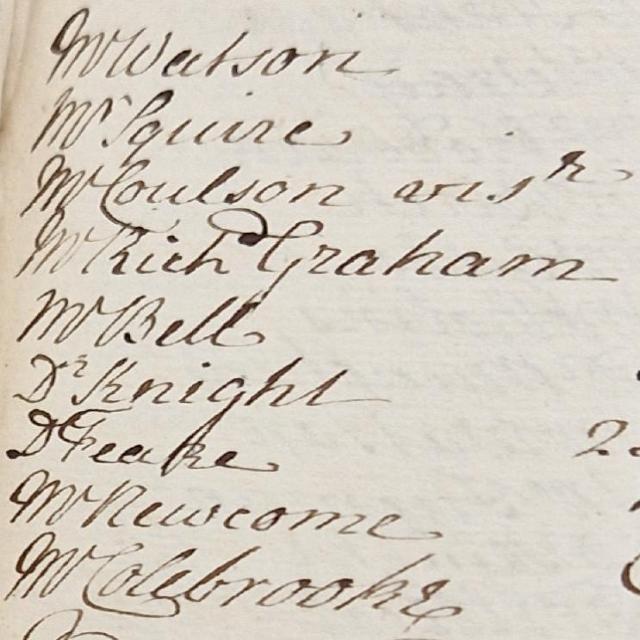 Mr Watson
Mr Squire
Mr Coulson visr
Mr Richd Graham
Mr Bell
Dr Knight
Dr Feake
Mr Newcome
Mr Colebrooke